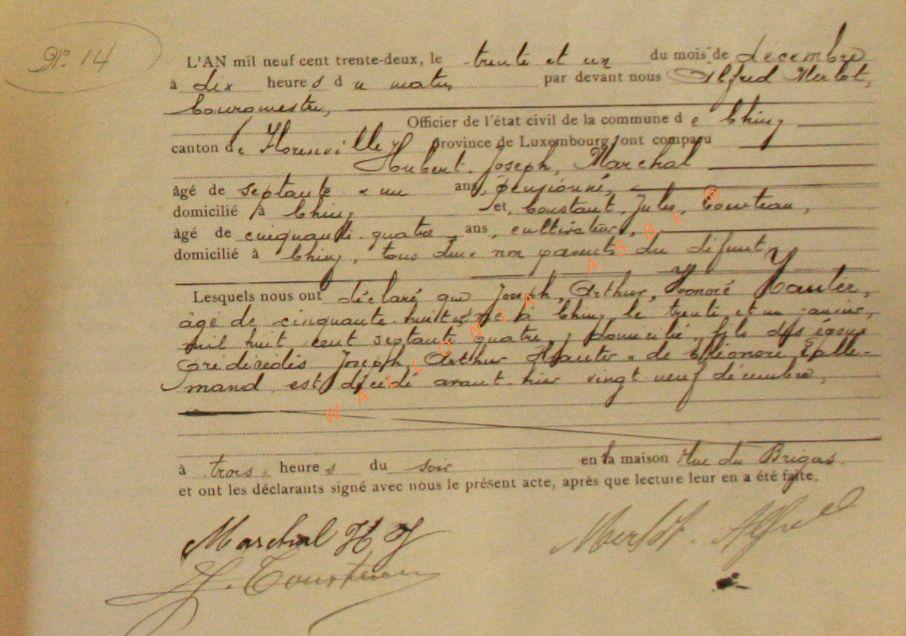 N° 14
L'AN mil neuf cent trente-deux, le trente et un du mois de décembre
à dix heures du matin par devant nous Alfred Merlot,
bourgmestre,
Officier de l'état civil de la commune de Chiny
canton de Florenville, province de Luxembourg, ont comparu
Hubert, Joseph, Marchal
âgé de septante et un ans, pensionné,
domicilié à Chiny et Constant, Jules,
âgé de cinquante quatre ans, cultivateur,
domicilié à Chiny, tous deux non parents du défunt,
Lesquels nous ont déclaré que Joseph, Arthur, Honoré
âgé de cinquante huit à Chiny, le trente et un janvier,
mil huit cent septante quatre, y domicilié, fils des époux
prédécédés Joseph, Arthur de Eléonore
est décédé avant-hier vingt neuf décembre,
à trois heures du soir en sa maison Rue du Brigas.
et ont les déclarants signé avec nous le présent acte, après que lecture leur en a été faite.
Marchal H J Merlot. Alfred
WALLONIA ASBL ©